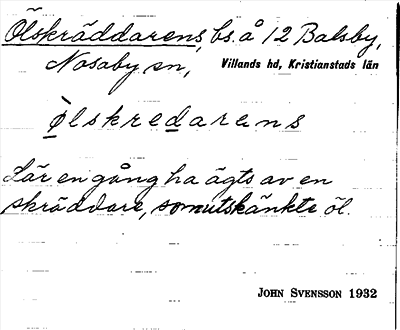 Ölskräddarens, bs. å 12 Balsby,
Nosaby sn, Villands hd, Kristianstads län
Ølskredarens
Lär en gång ha ägts av en
skräddare, som utskänkte öl.
JOHN SVENSSON 1932